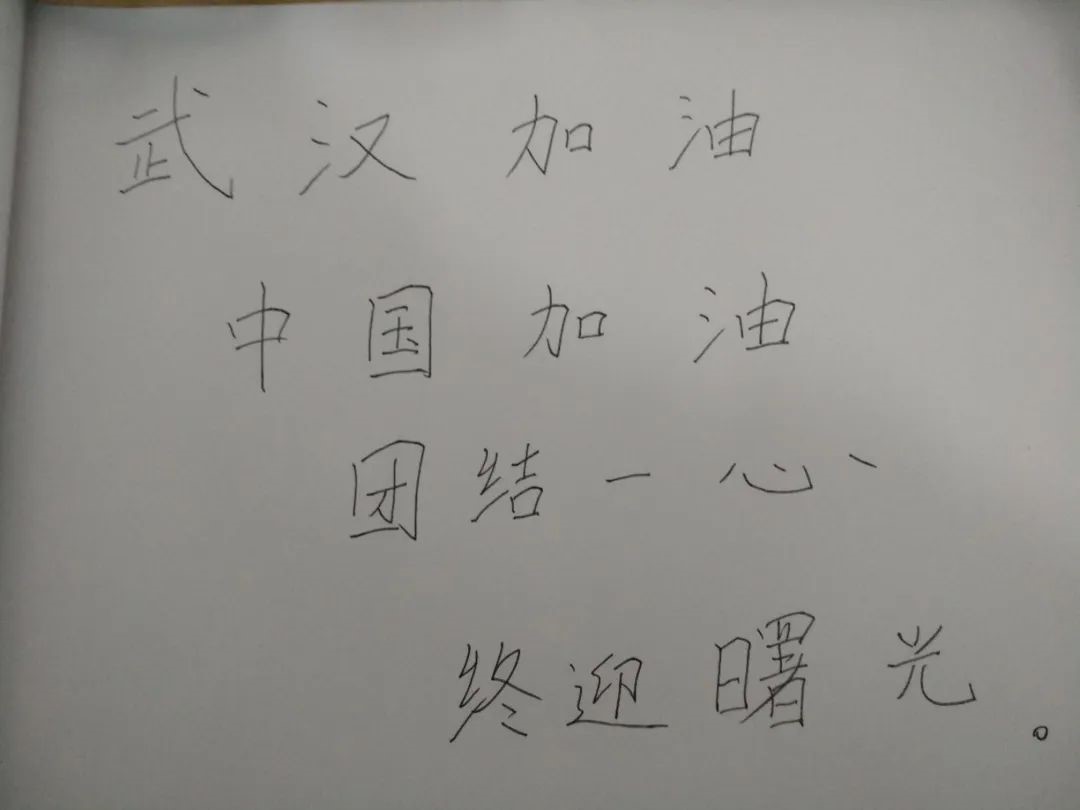 武汉加油
中国加油
团结一心、
终迎曙光。